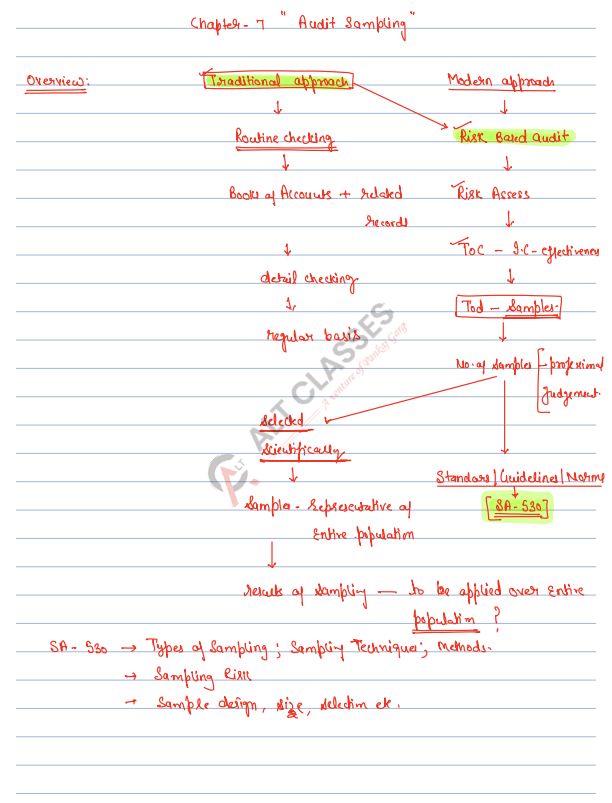 Chapter-7 " Audit Sampling"
Overview:
Traditional approach
Modern approach
Routine checking
Risk Based audit
Books of Accounts + related
records
Risk Assess
ToC - I.C - effectiveness
detail checking
Tod - Samples-
regular basis
No. of samples
Judgement.
Selected
Scientifically
[SA-530]
Samples - Representative of
Entire population
results of sampling — to be applied over Entire
population ?
SA - 530 → Types of Sampling; Sampling Techniques; Methods.
→ Sampling Risk
→ Sample design, size, selection etc.
ALT CLASSES
A venture of Pankaj Garg
ALT